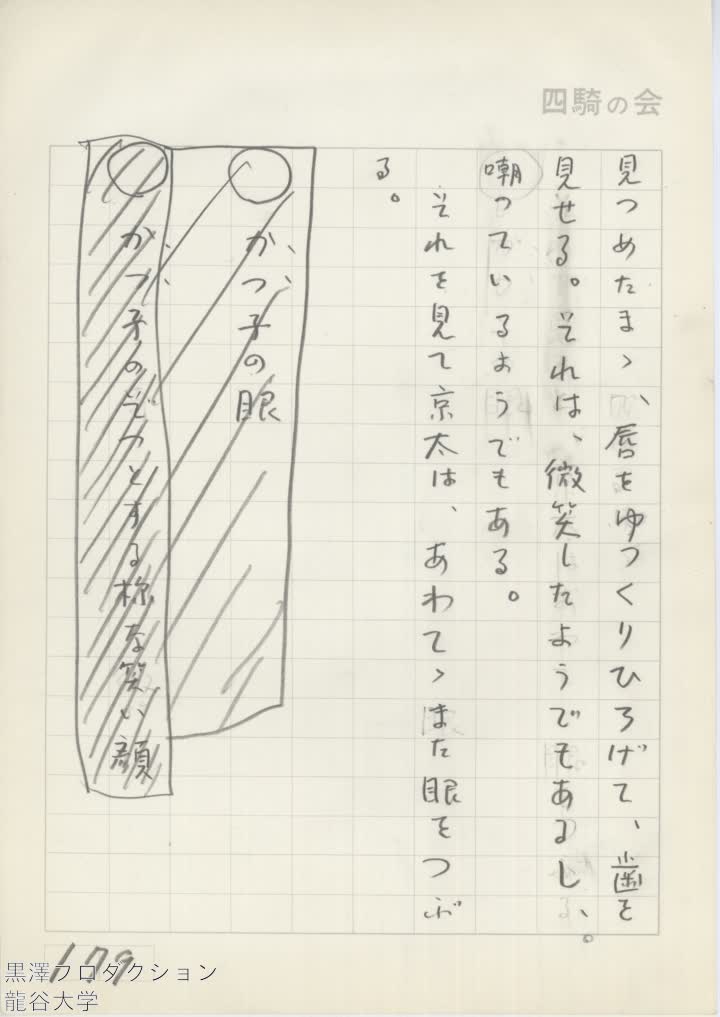 四騎の会
見つめたまゝ、唇をゆつくりひろげて、歯を
見せる。それは、微笑したようでもあるし、
嘲つているようでもある。
それを見て京太は、あわてゝまた眼をつぶ
る。
○かつ子の眼
○かつ子のぞつとする様な笑い顔
179
黒澤プロダクション
龍谷大学